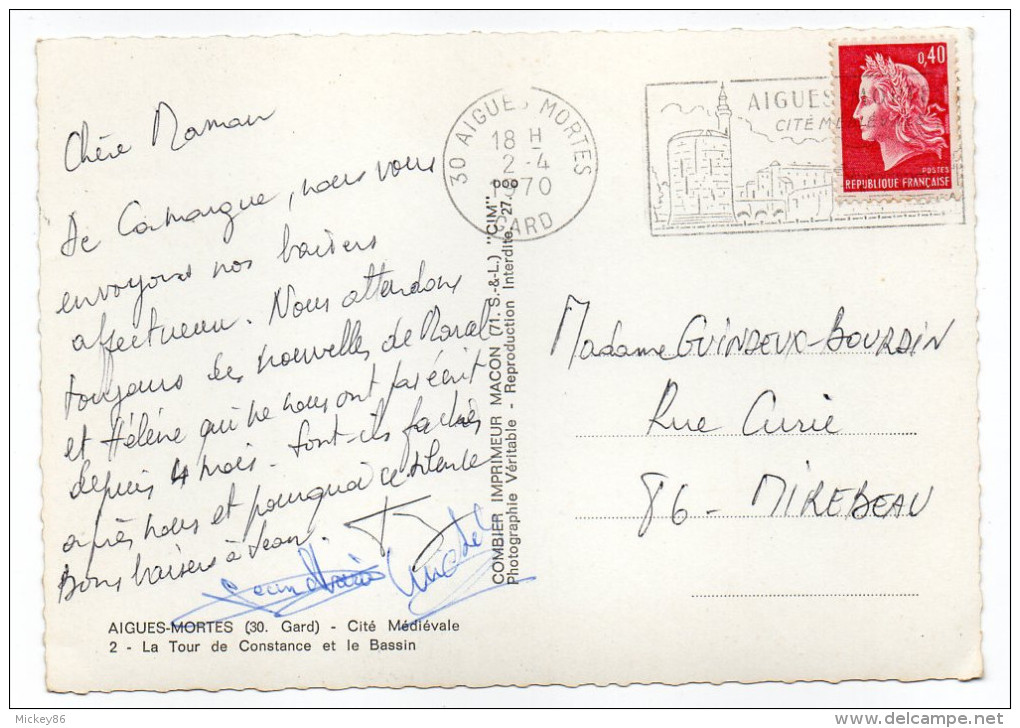 Chère Maman
De Camargue, nous vous
envoyons nos baisers
affectueux. Nous attendons
toujours des nouvelles de Marcel
et Hélène qui ne nous ont pas écrit
depuis 4 mois. Sont-ils fachés
après nous et pourquoi ce silence
Bons baisers à Jean.
AIGUES-MORTES (30. Gard) - Cité Médiévale
2 - La Tour de Constance et le Bassin
COMBIER IMPRIMEUR MACON (71. S.-&-L.) "CIM"
Photographie Véritable - Reproduction Interdite
30 AIGUES MORTES
18 H
2 - 4
1970
GARD
AIGUES
CITÉ
0,40
POSTES
RÉPUBLIQUE FRANÇAISE
Madame GUINDEUX-BOURDIN
Rue Curie
86 - MIREBEAU
Mickey86
www.delcampe.net